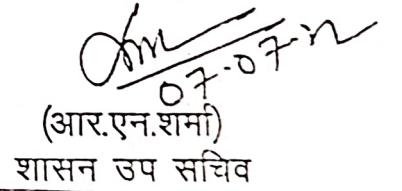 07-07-12
(आर.एन.शर्मा)
शासन उप सचिव